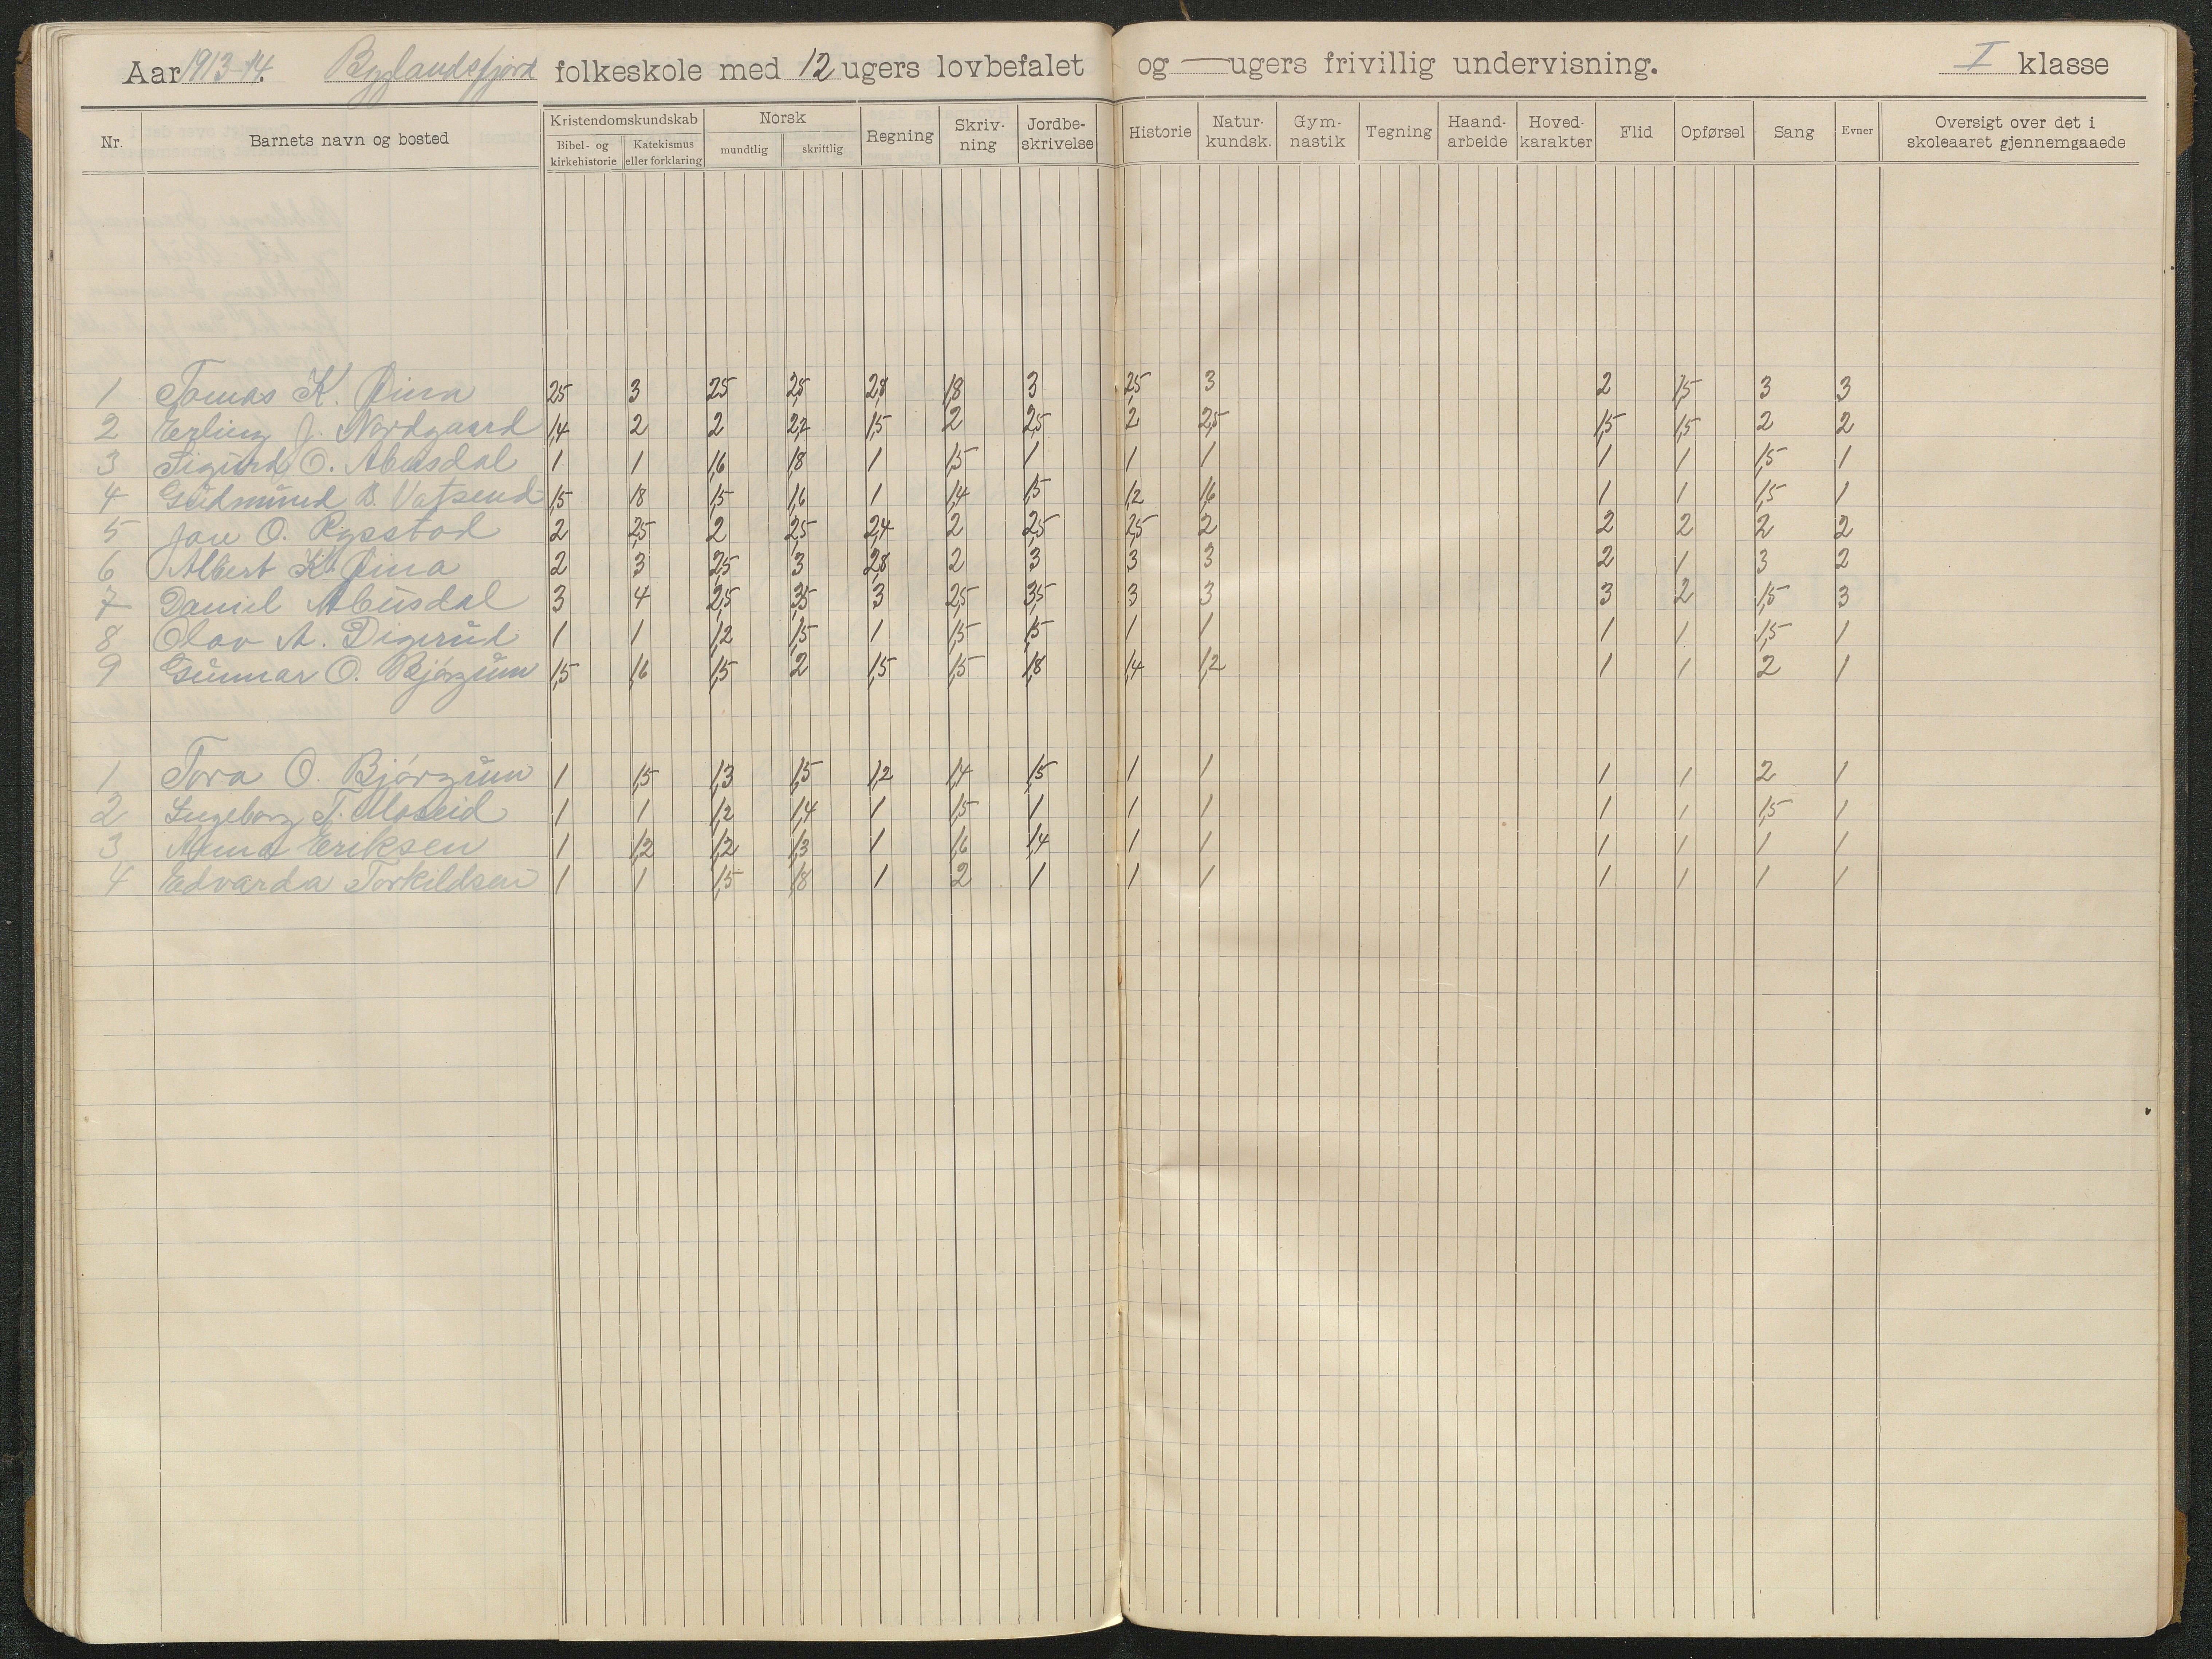 Aar 1913-14. Byglandsfjord folkeskole med 12 ugers lovbefalet og — ugers frivillig undervisning. I klasse
Nr. Barnets navn og bosted Kristendomskundskab Bibel- og kirkehistorie Katekismus eller forklaring Norsk mundtlig skriftlig Regning Skriv-ning Jordbe-skrivelse Historie Natur-kundsk. Gym-nastik Tegning Haand-arbeide Hoved-karakter Flid Opførsel Sang Evner Oversigt over det i skoleaaret gjennemgaaede
1 Tomas K. 2,5 3 2,5 2,5 2,8 1,8 3 2,5 3 2 1,5 3 3
2 Erling J. Nordgaard 1,4 2 2 2,2 1,5 2 2,5 2 2,5 1,5 1,5 2 2
3 Sigurd O. Abusdal 1 1 1,6 1,8 1 1,5 1 1 1 1 1 1,5 1
4 Gudmund B. Vatsend 1,5 1,8 1,5 1,6 1 1,4 1,5 1,2 1,6 1 1 1,5 1
5 Jon O. Rysstad 2 2,5 2 2,5 2,4 2 2,5 2,5 2 2 2 2 2
6 Albert K. 2 3 2,5 3 2,8 2 3 3 3 2 1 3 2
7 Daniel Abusdal 3 4 2,5 3,5 3 2,5 3,5 3 3 3 2 1,5 3
8 Olav A. Digerud 1 1 1,2 1,5 1 1,5 1,5 1 1 1 1 1,5 1
9 Gunnar O. Bjørgum 1,5 1,6 1,5 2 1,5 1,5 1,8 1,4 1,2 1 1 2 1
1 Tora O. Bjørgum 1 1,5 1,3 1,5 1,2 1,4 1,5 1 1 1 1 2 1
2 Ingeborg T. Moseid 1 1 1,2 1,4 1 1,5 1 1 1 1 1 1,5 1
3 Anna Eriksen 1 1,2 1,2 1,3 1 1,6 1,4 1 1 1 1 1 1
4 Edvarda Torkildsen 1 1 1,5 1,8 1 2 1 1 1 1 1 1 1